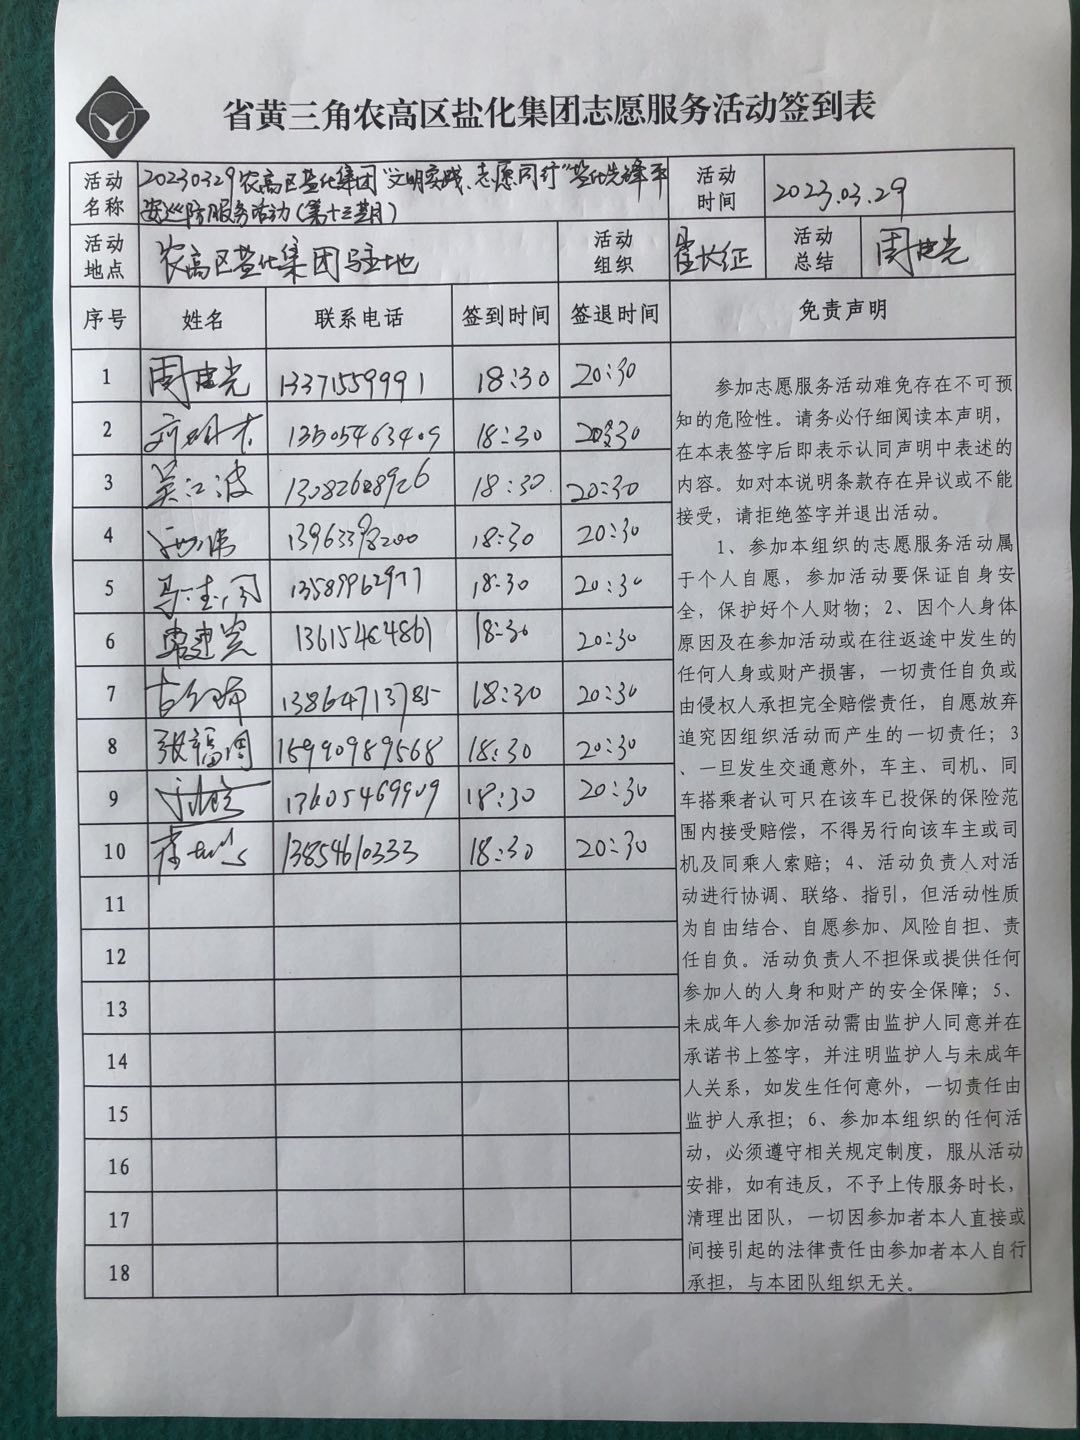 省黄三角农高区盐化集团志愿服务活动签到表
活动名称 20230329农高区盐化集团“文明实践、志愿同行”盐化先锋平
安巡防服务活动(第十三期) 活动时间 2023.03.29
活动地点 农高区盐化集团驻地 活动组织 崔长征 活动总结 周建光
序号 姓名 联系电话 签到时间 签退时间 免责声明
1 周建光 13371559991 18:30 20:30
2 13505463409 18:30 20:30
3 吴江波 13082688926 18:30 20:30
4 13963398200 18:30 20:30
5 13589962977 18:30 20:30
6 13615464861 18:30 20:30
7 13864713785 18:30 20:30
8 张福周 15990989568 18:30 20:30
9 13605469909 18:30 20:30
10 13854610333 18:30 20:30
11
12
13
14
15
16
17
18
参加志愿服务活动难免存在不可预
知的危险性。请务必仔细阅读本声明,
在本表签字后即表示认同声明中表述的
内容。如对本说明条款存在异议或不能
接受,请拒绝签字并退出活动。
1、参加本组织的志愿服务活动属
于个人自愿,参加活动要保证自身安
全,保护好个人财物;2、因个人身体
原因及在参加活动或在往返途中发生的
任何人身或财产损害,一切责任自负或
由侵权人承担完全赔偿责任,自愿放弃
追究因组织活动而产生的一切责任;3
、一旦发生交通意外,车主、司机、同
车搭乘者认可只在该车已投保的保险范
围内接受赔偿,不得另行向该车主或司
机及同乘人索赔;4、活动负责人对活
动进行协调、联络、指引,但活动性质
为自由结合、自愿参加、风险自担、责
任自负。活动负责人不担保或提供任何
参加人的人身和财产的安全保障;5、
未成年人参加活动需由监护人同意并在
承诺书上签字,并注明监护人与未成年
人关系,如发生任何意外,一切责任由
监护人承担;6、参加本组织的任何活
动,必须遵守相关规定制度,服从活动
安排,如有违反,不予上传服务时长,
清理出团队,一切因参加者本人直接或
间接引起的法律责任由参加者本人自行
承担,与本团队组织无关。